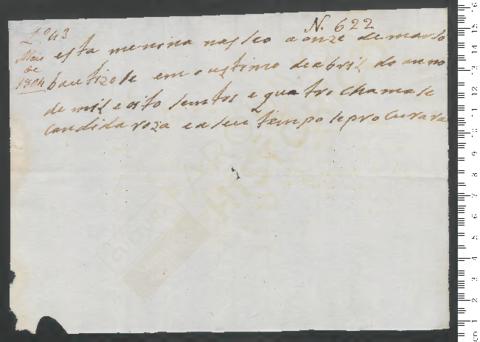 Lº 43
N. 622
Maio
de
1804
esta menina nasseo a onze de marso
bautizose em o ustimo de abril do anno
de mil e oito sentos e quatro chamase
candida roza e a seu tempo se procurara